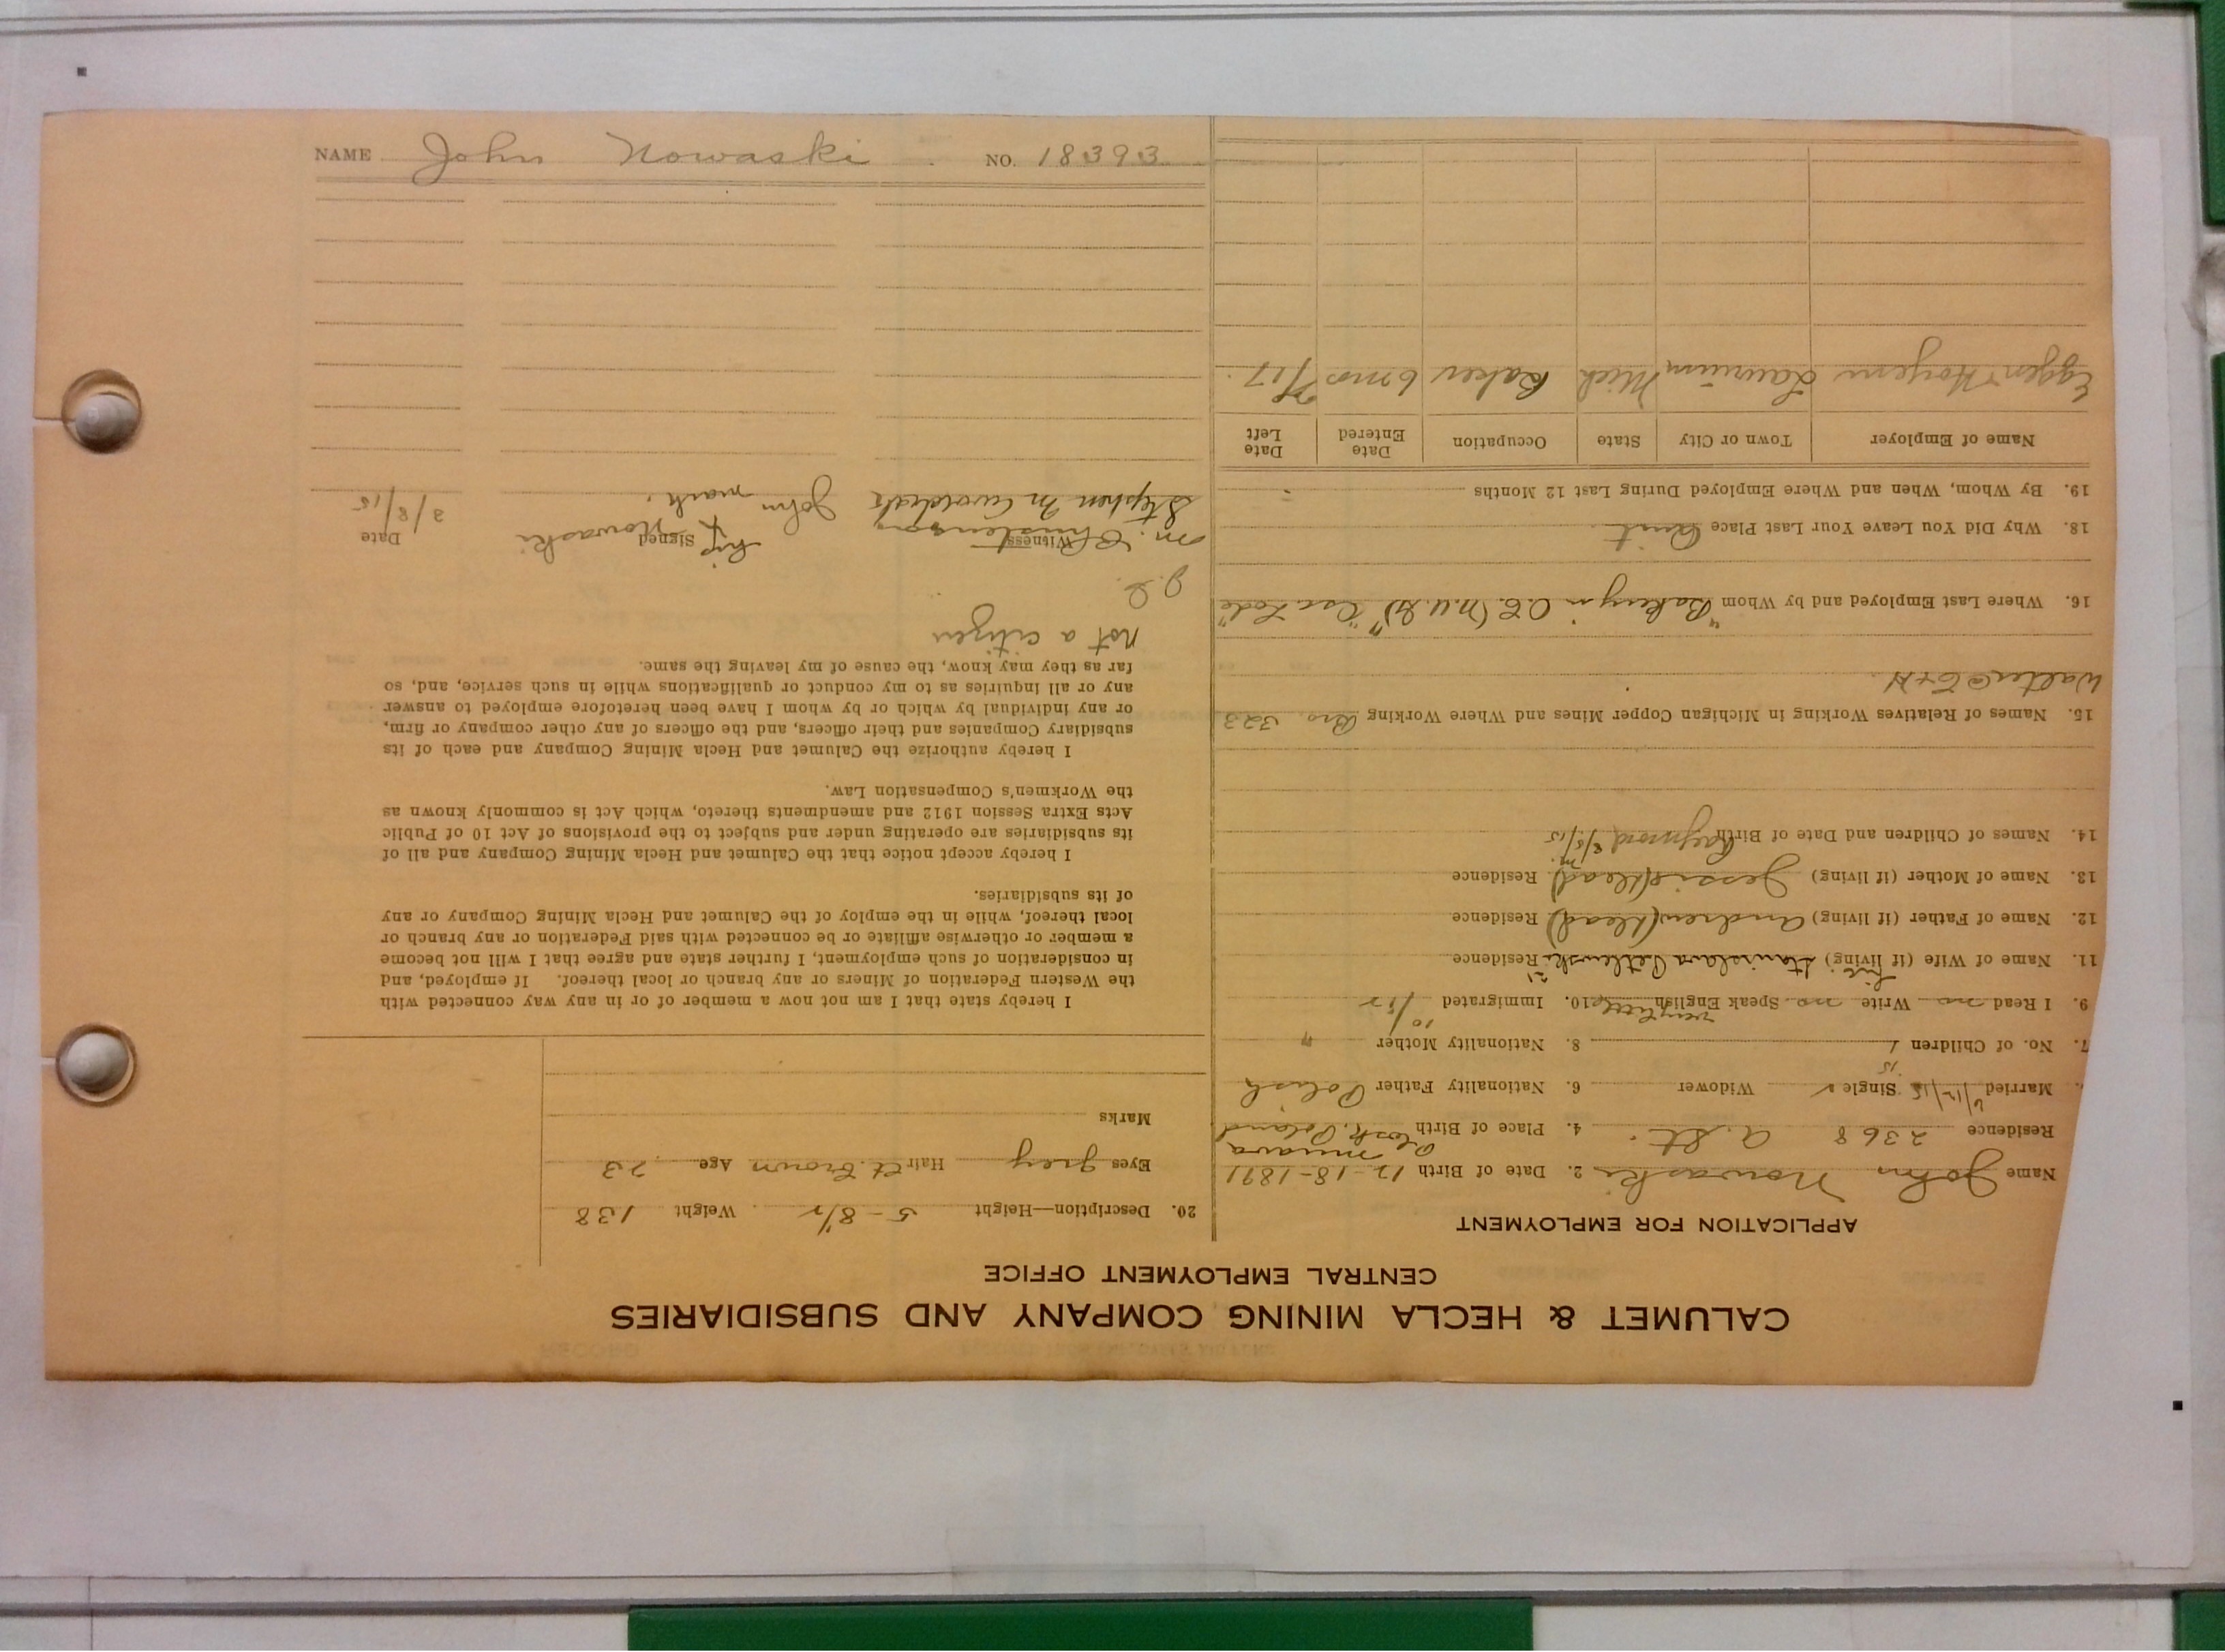 CALUMET & HECLA MINING COMPANY AND SUBSIDIARIES
CENTRAL EMPLOYMENT OFFICE
APPLICATION FOR EMPLOYMENT
Name John Nowaski 2. Date of Birth 12-18-1891
Residence 2368 A. St. 4. Place of Birth Plosk, Poland
Married 6/12/15 Single Widower 6. Nationality Father Polish
15
7. No. of Children 1 8. Nationality Mother "
9. I Read no Write no Speak English very little 10. Immigrated 10/5/12
11. Name of Wife (if living) Stanislava Residence
12. Name of Father (if living) Andrew (dead) Residence
13. Name of Mother (if living) Jessie (dead) Residence
14. Names of Children and Date of Birth Raymond 8/5/15
15. Names of Relatives Working in Michigan Copper Mines and Where Working Bro. 323
Walter @ C&H.
16. Where Last Employed and by Whom "Bakery in O.C. (N.Y.)" "Osc. Lode"
18. Why Did You Leave Your Last Place Quit
19. By Whom, When and Where Employed During Last 12 Months
Name of Employer Town or City State Occupation Date Entered Date Left
Laurium Mich Baker 6 mos 7/17.
20. Description—Height 5-8 1/2 Weight 138
Eyes grey Hair Lt. Brown Age 23
Marks
I hereby state that I am not now a member of or in any way connected with
the Western Federation of Miners or any branch or local thereof. If employed, and
in consideration of such employment, I further state and agree that I will not become
a member or otherwise affiliate or be connected with said Federation or any branch or
local thereof, while in the employ of the Calumet and Hecla Mining Company or any
of its subsidiaries.
I hereby accept notice that the Calumet and Hecla Mining Company and all of
its subsidiaries are operating under and subject to the provisions of Act 10 of Public
Acts Extra Session 1912 and amendments thereto, which Act is commonly known as
the Workmen's Compensation Law.
I hereby authorize the Calumet and Hecla Mining Company and each of its
subsidiary Companies and their officers, and the officers of any other company or firm,
or any individual by which or by whom I have been heretofore employed to answer
any or all inquiries as to my conduct or qualifications while in such service, and, so
far as they may know, the cause of my leaving the same.
not a citizen
Witness Signed Date
M. Christenson his X Nowaski
Stephen M John mark. 3/8/15
NAME John Nowaski NO. 18393